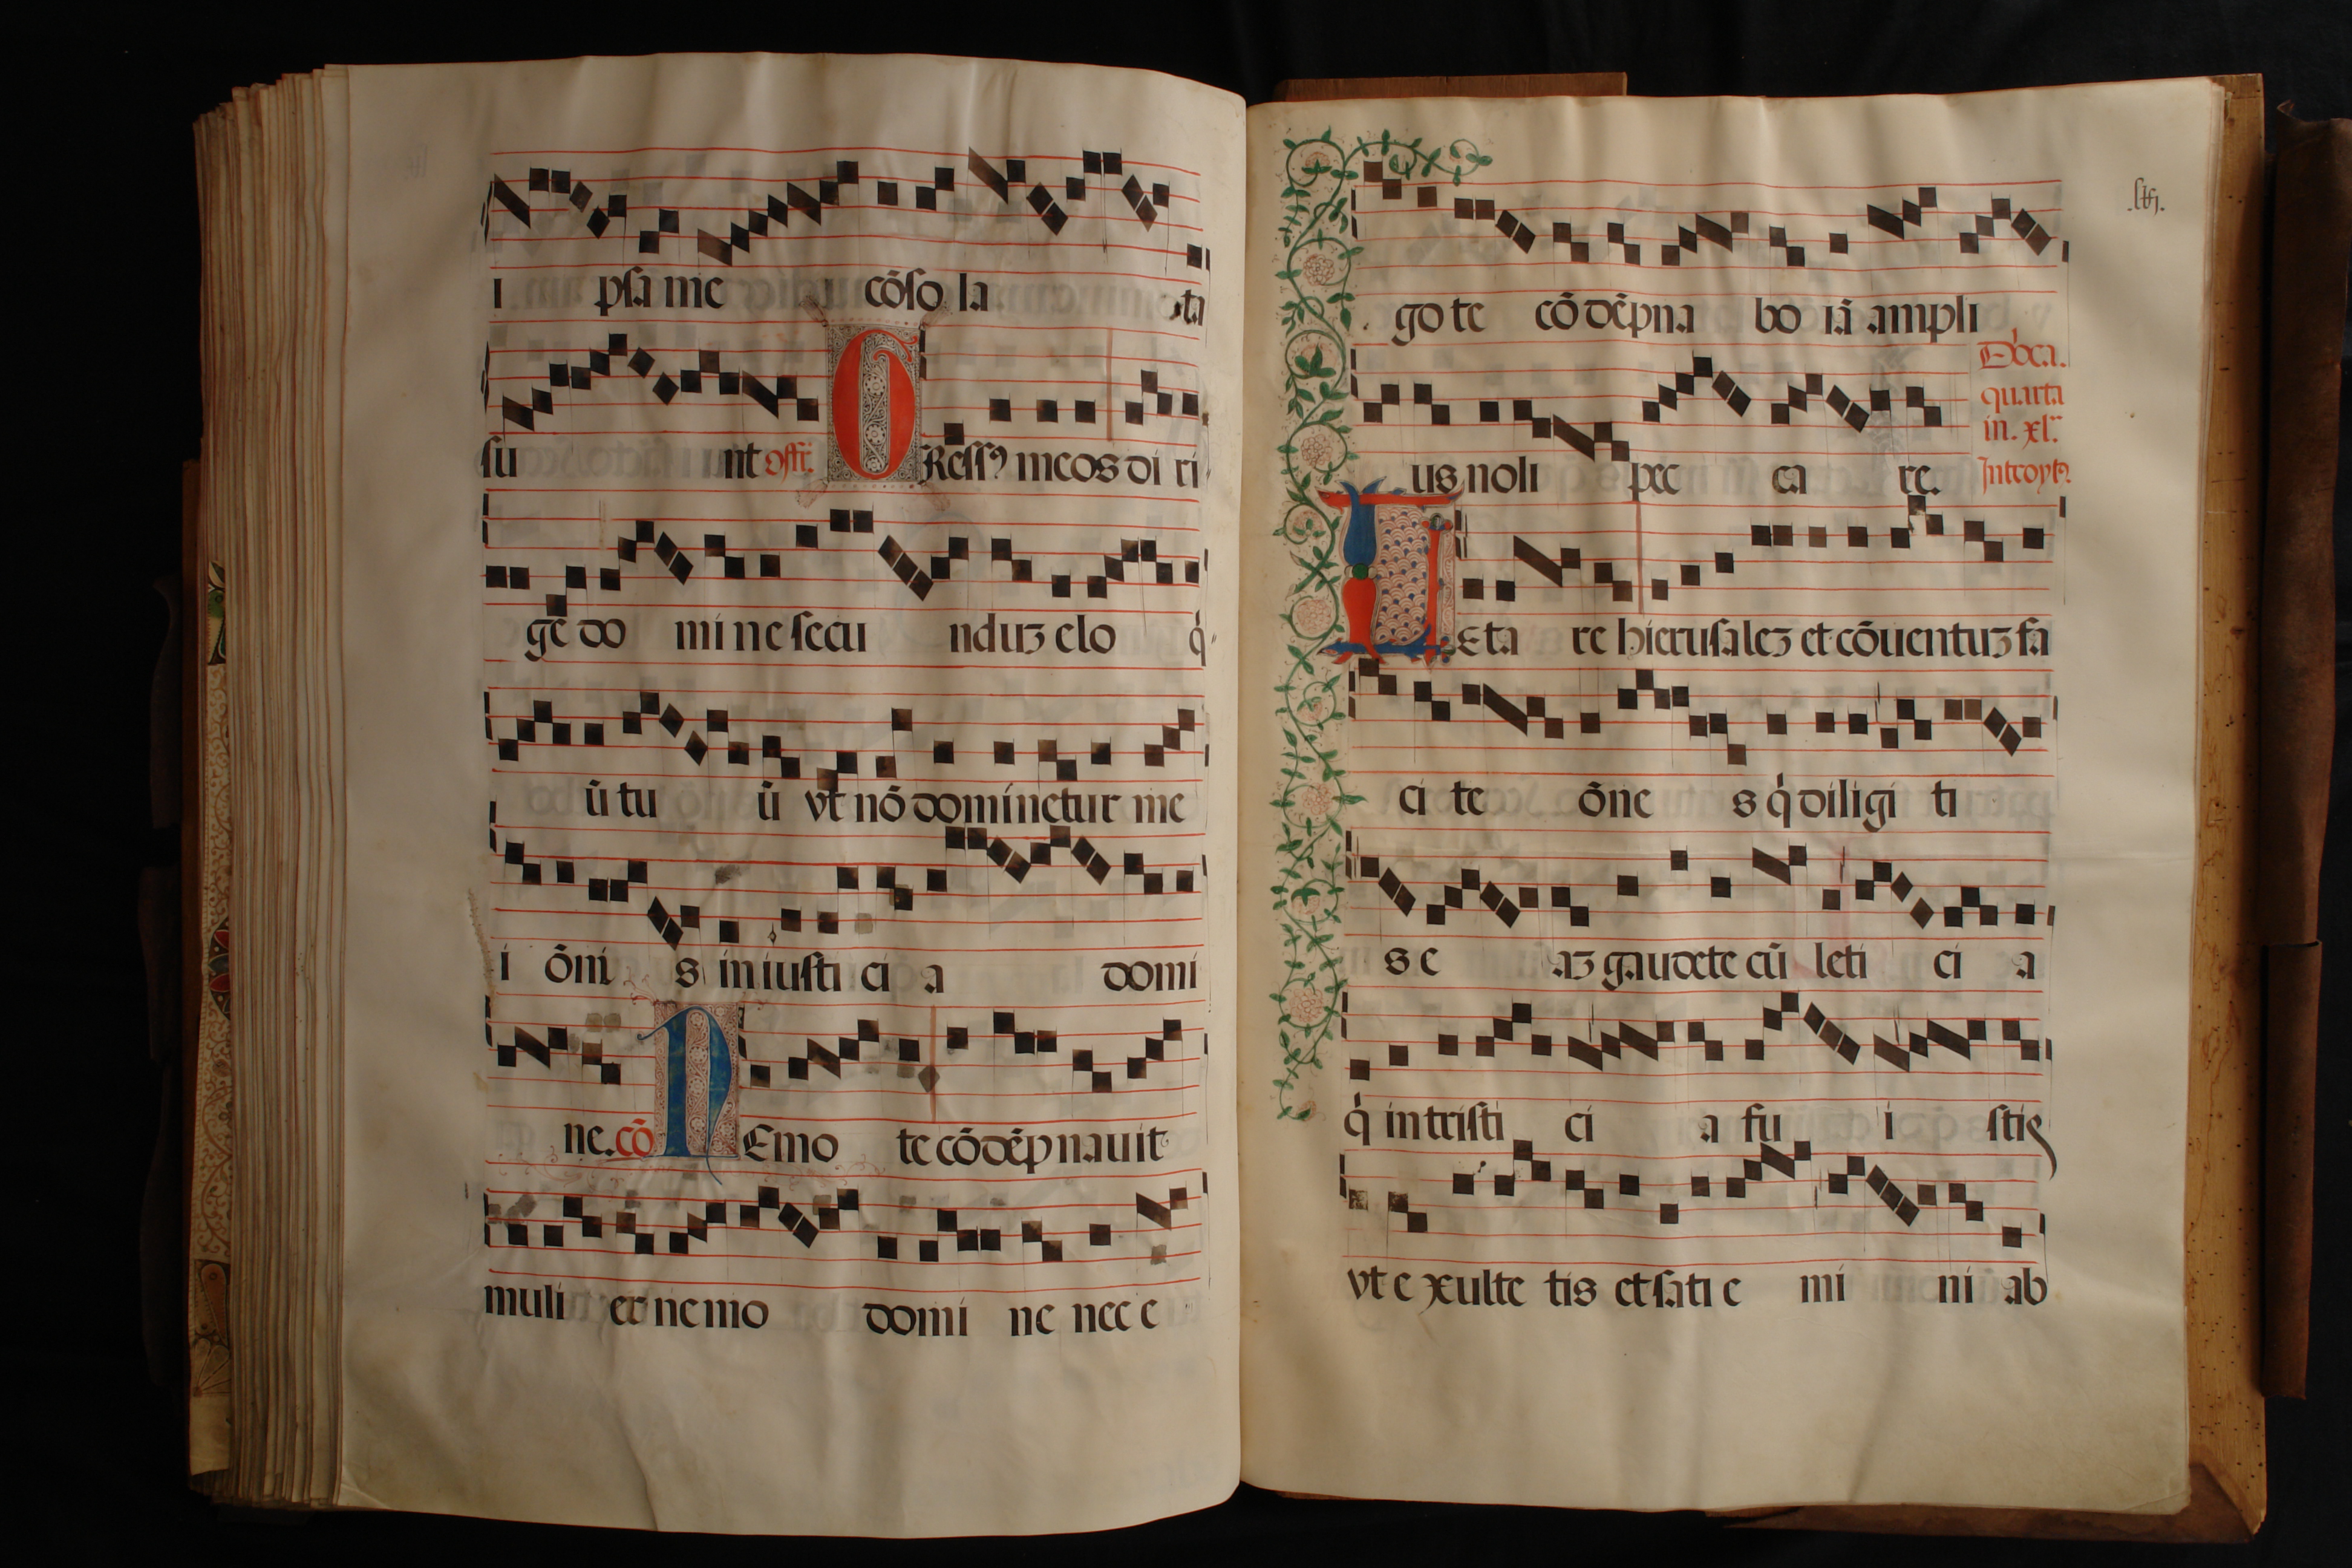 i psa me cõso la ta
su nt offr̃. GRessꝰ meos di ri
ge do mi ne secu nduȝ elo q̇
ũ tu ũ vt nõ dominetur me
i õni s iniusti ci a domi
ne. cõ NEmo te cõdẽpnauit
muli er nemo domi ne nec e
go te cõ dẽpna bo iã ampli
us noli pec ca re.
Dõca.
quarta
in. xl.
Introytꝰ
LEta re hierusaleȝ et cõuentuȝ fa
ci te õne s q̇ diligi ti
s e aȝ gaudete cũ leti ci a
q̇ in tristi ci a fu i stis
vt e xulte tis et sati e mi ni ab